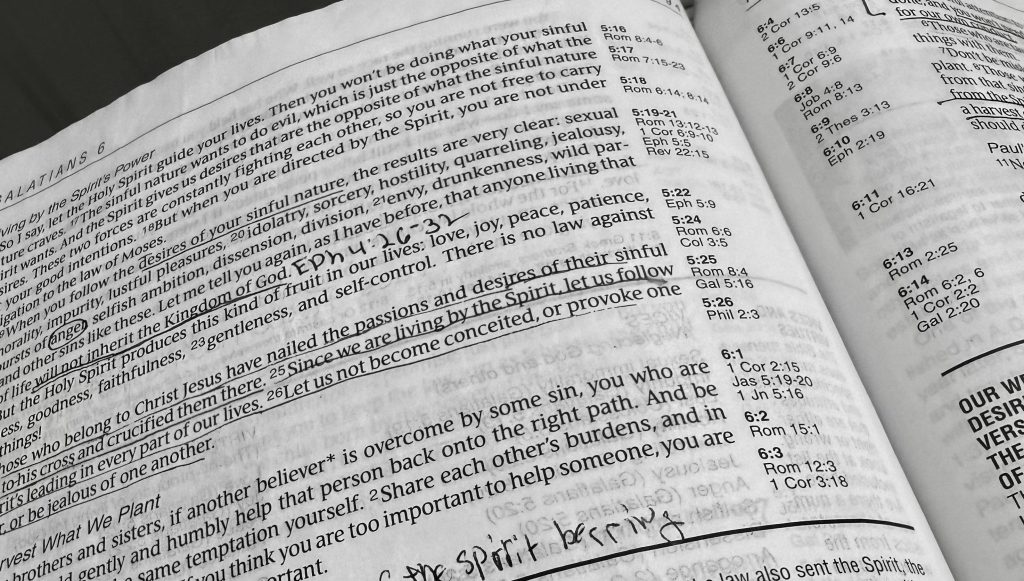 ALATIANS 6
ving by the Spirit's Power
So I say, let the Holy Spirit guide your lives. Then you won't be doing what your sinful
ture craves. 17The sinful nature wants to do evil, which is just the opposite of what the
irit wants. And the Spirit gives us desires that are the opposite of what the sinful nature
sires. These two forces are constantly fighting each other, so you are not free to carry
your good intentions. 18But when you are directed by the Spirit, you are not under
igation to the law of Moses.
When you follow the desires of your sinful nature, the results are very clear: sexual
orality, impurity, lustful pleasures, 20idolatry, sorcery, hostility, quarreling, jealousy,
ursts of anger, selfish ambition, dissension, division, 21envy, drunkenness, wild par-
and other sins like these. Let me tell you again, as I have before, that anyone living that
of life will not inherit the Kingdom of God. EPh 4:26-32
But the Holy Spirit produces this kind of fruit in our lives: love, joy, peace, patience,
ess, goodness, faithfulness, 23gentleness, and self-control. There is no law against
things!
hose who belong to Christ Jesus have nailed the passions and desires of their sinful
to his cross and crucified them there. 25Since we are living by the Spirit, let us follow
rit's leading in every part of our lives. 26Let us not become conceited, or provoke one
r, or be jealous of one another.
rvest What We Plant
brothers and sisters, if another believer* is overcome by some sin, you who are
ld gently and humbly help that person back onto the right path. And be
same temptation yourself. 2Share each other's burdens, and in
you think you are too important to help someone, you are
ortant.
the spirit
law also sent the Spirit, the
5:16
Rom 8:4-6
5:17
Rom 7:15-23
5:18
Rom 6:14; 8:14
5:19-21
Rom 13:12-13
1 Cor 6:9-10
Eph 5:5
Rev 22:15
5:22
Eph 5:9
5:24
Rom 6:6
Col 3:5
5:25
Rom 8:4
Gal 5:16
5:26
Phil 2:3
6:1
1 Cor 2:15
Jas 5:19-20
1 Jn 5:16
6:2
Rom 15:1
6:3
Rom 12:3
1 Cor 3:18
6:4
2 Cor 13:5
6:6
1 Cor 9:11, 14
6:7
1 Cor 6:9
2 Cor 9:6
6:8
Job 4:8
Rom 6:13
6:9
2 Thes 3:13
6:10
Eph 2:19
6:11
1 Cor 16:21
6:13
Rom 2:25
6:14
Rom 6:2, 6
1 Cor 2:2
Gal 2:20
for our own
6Those who are
things with them
7Don't be
plant. 8Those
from that
from the
a harvest
should
Paul
OUR W
DESIR
VERS
THE
OF